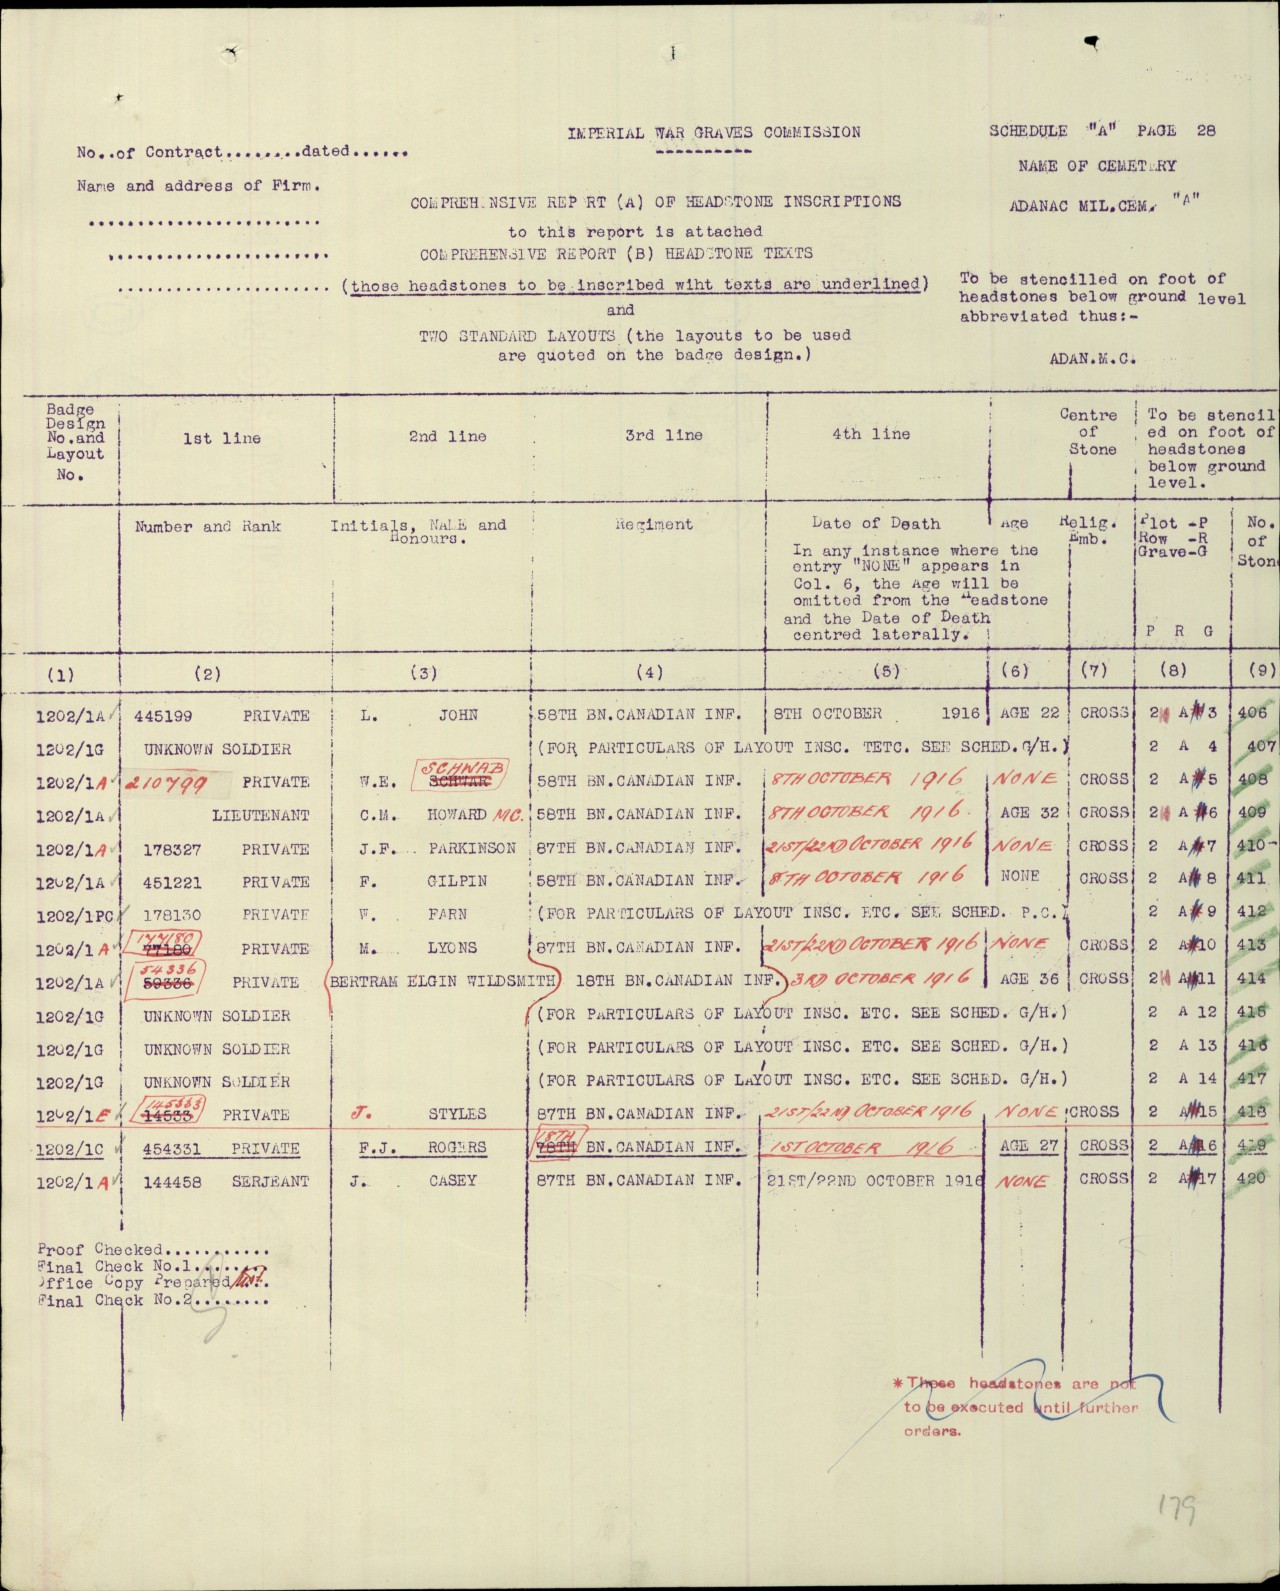 IMPERIAL WAR GRAVES COMMISSION
SCHEDULE "A" PAGE 28
No..of Contract........dated......
NAME OF CEMETERY
Name and address of Firm.
COMPREHENSIVE REPORT (A) OF HEADSTONE INSCRIPTIONS
ADANAC MIL.CEM. "A"
to this report is attached
COMPREHENSIVE REPORT (B) HEADSTONE TEXTS
(those headstones to be inscribed wiht texts are underlined)
To be stencilled on foot of
headstones below ground level
abbreviated thus:-
and
TWO STANDARD LAYOUTS (the layouts to be used
are quoted on the badge design.)
ADAN.M.C.
Badge
Design
No.and
Layout
No.
1st line
2nd line
3rd line
4th line
Centre
of
Stone
To be stencil
ed on foot of
headstones
below ground
level.
Number and Rank
Initials, NAME and
Honours.
Regiment
Date of Death
In any instance where the
entry "NONE" appears in
Col. 6, the Age will be
omitted from the Headstone
and the Date of Death
centred laterally.
Age
Relig.
Emb.
Plot -P
Row -R
Grave-G
P R G
No.
of
Ston
(1) (2) (3) (4) (5) (6) (7) (8) (9)
1202/1A 445199 PRIVATE L. JOHN 58TH BN.CANADIAN INF. 8TH OCTOBER 1916 AGE 22 CROSS 2 A 3 406
1202/1G UNKNOWN SOLDIER (FOR PARTICULARS OF LAYOUT INSC. TETC. SEE SCHED.G/H.) 2 A 4 407
SCHWAB
1202/1A 210799 PRIVATE W.E. SCHWAR 58TH BN.CANADIAN INF. 8TH OCTOBER 1916 NONE CROSS 2 A 5 408
1202/1A LIEUTENANT C.M. HOWARD MC. 58TH BN.CANADIAN INF. 8TH OCTOBER 1916 AGE 32 CROSS 2 A 6 409
1202/1A 178327 PRIVATE J.F. PARKINSON 87TH BN.CANADIAN INF. 21ST/22ND OCTOBER 1916 NONE CROSS 2 A 7 410
1202/1A 451221 PRIVATE F. GILPIN 58TH BN.CANADIAN INF. 8TH OCTOBER 1916 NONE CROSS 2 A 8 411
1202/1PC 178130 PRIVATE W. FARN (FOR PARTICULARS OF LAYOUT INSC. ETC. SEE SCHED. P.C.) 2 A 9 412
177180
1202/1A 77180 PRIVATE M. LYONS 87TH BN.CANADIAN INF. 21ST/22ND OCTOBER 1916 NONE CROSS 2 A 10 413
54336
1202/1A 59336 PRIVATE BERTRAM ELGIN WILDSMITH 18TH BN.CANADIAN INF. 3RD OCTOBER 1916 AGE 36 CROSS 2 A 11 414
1202/1G UNKNOWN SOLDIER (FOR PARTICULARS OF LAYOUT INSC. ETC. SEE SCHED. G/H.) 2 A 12 415
1202/1G UNKNOWN SOLDIER (FOR PARTICULARS OF LAYOUT INSC. ETC. SEE SCHED. G/H.) 2 A 13 416
1202/1G UNKNOWN SOLDIER (FOR PARTICULARS OF LAYOUT INSC. ETC. SEE SCHED. G/H.) 2 A 14 417
145333
1202/1E 14533 PRIVATE J. STYLES 87TH BN.CANADIAN INF. 21ST/22ND OCTOBER 1916 NONE CROSS 2 A 15 418
18TH
1202/1C 454331 PRIVATE F.J. ROGERS 78TH BN.CANADIAN INF. 1ST OCTOBER 1916 AGE 27 CROSS 2 A 16 419
1202/1A 144458 SERJEANT J. CASEY 87TH BN.CANADIAN INF. 21ST/22ND OCTOBER 1916 NONE CROSS 2 A 17 420
Proof Checked...........
Final Check No.1........
Office Copy Prepared
Final Check No.2........
*These headstones are not
to be executed until further
orders.
179